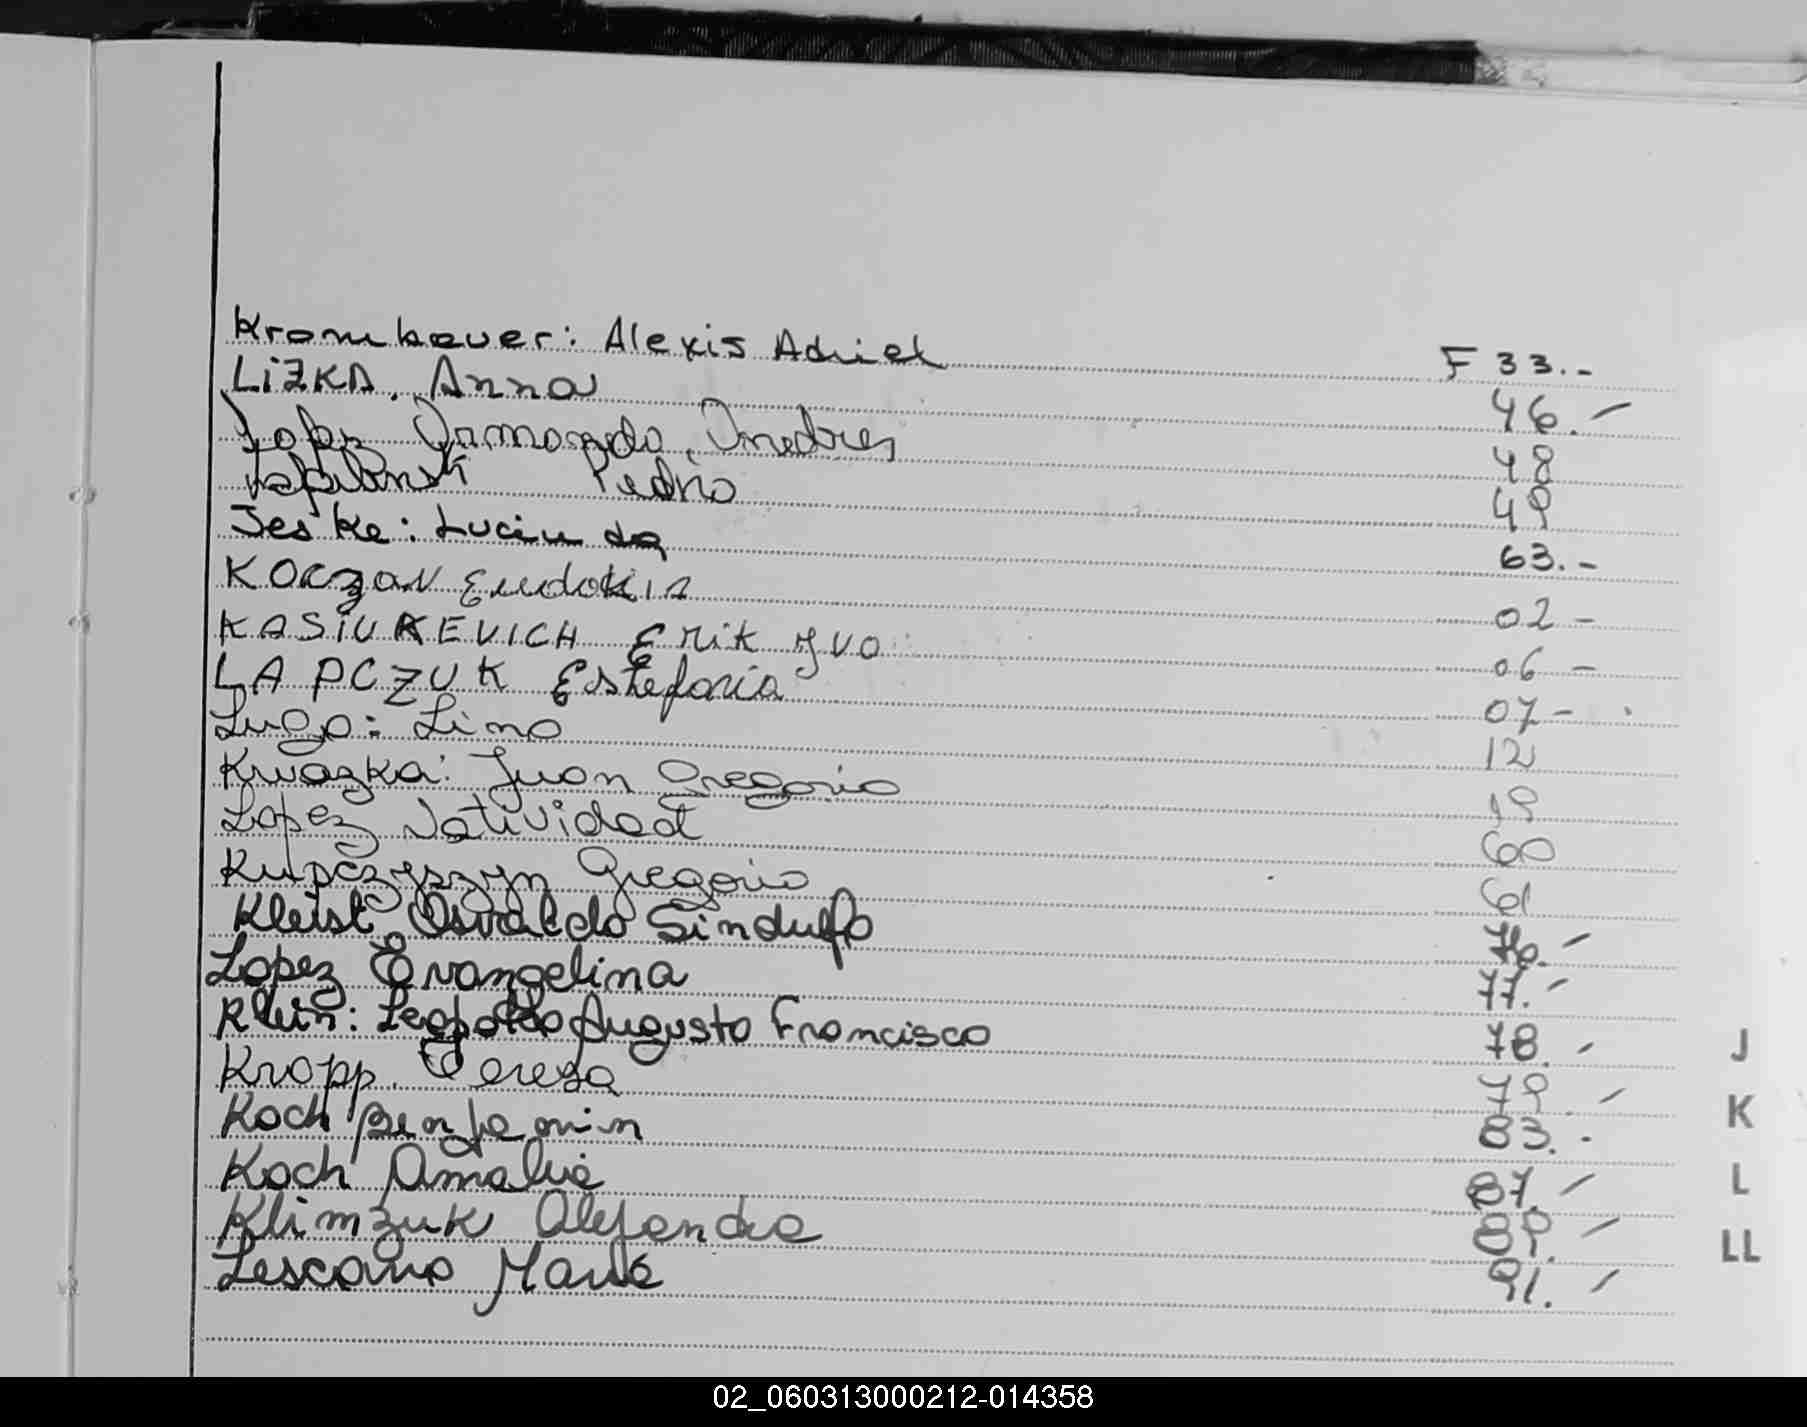 Krombauer: Alexis Adriel F 33.-
LIZKA. Anna 46.-
Lopez Armando Andres 48
Pedro 49
Jeske: Lucinda 63.-
KOCZAN Eudokia 02 -
KASIUKEVICH Erik Ivo 06 -
LAPCZUK Estefania 07 -
Lugo: Lino 12
Kwazka: Juan Gregorio 19
Lopez Natividad 60
Kupczyszyn Gregorio 61
Kleist Osvaldo Sindulfo 76.-
Lopez Evangelina 77.-
Klein: Leopoldo Augusto Francisco 78.-
Kropp. Teresa 79.-
Koch Benjamin 83.-
Koch Amalia 87.-
Klimzuk Alejandro 89.-
Lescano María 91.-
J
K
L
LL
02_060313000212-014358